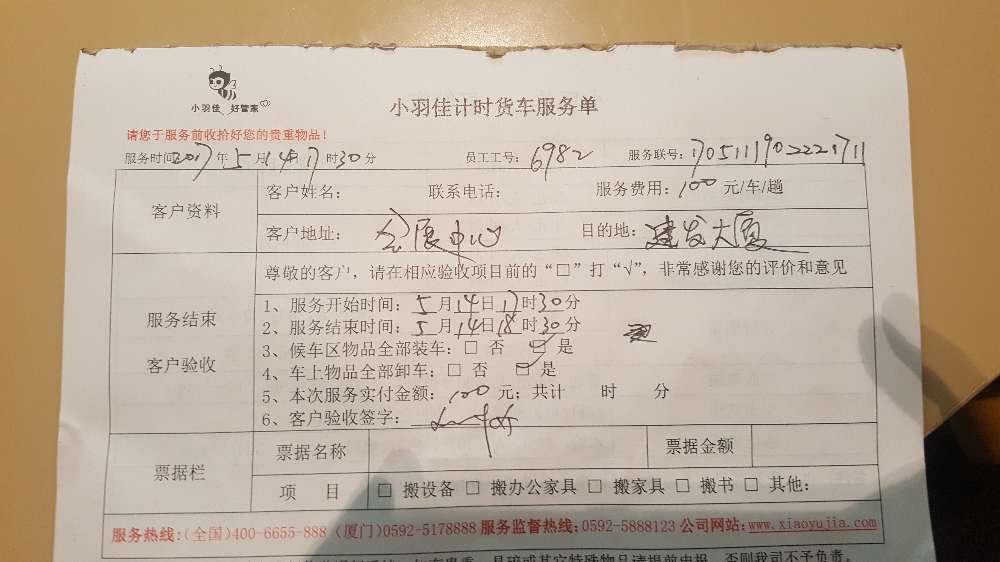 小羽佳 好管家
小羽佳计时货车服务单
请您于服务前收拾好您的贵重物品！
服务时间2017年5月14日17时30分 员工工号：6982 服务联号：
客户资料
客户姓名： 联系电话： 服务费用：100元/车/趟
客户地址：会展中心 目的地：建发大厦
尊敬的客户，请在相应验收项目前的“□”打“√”，非常感谢您的评价和意见
服务结束
客户验收
1、服务开始时间：5月14日17时30分
2、服务结束时间：5月14日18时30分
3、候车区物品全部装车：□ 否 ☑ 是
4、车上物品全部卸车：□ 否 ☑ 是
5、本次服务实付金额：100元；共计 时 分
6、客户验收签字：
票据栏
票据名称 票据金额
项 目 □ 搬设备 □ 搬办公家具 □ 搬家具 □ 搬书 □ 其他：
服务热线：(全国)400-6655-888 (厦门)0592-5178888 服务监督热线：0592-5888123 公司网站：www.xiaoyujia.com